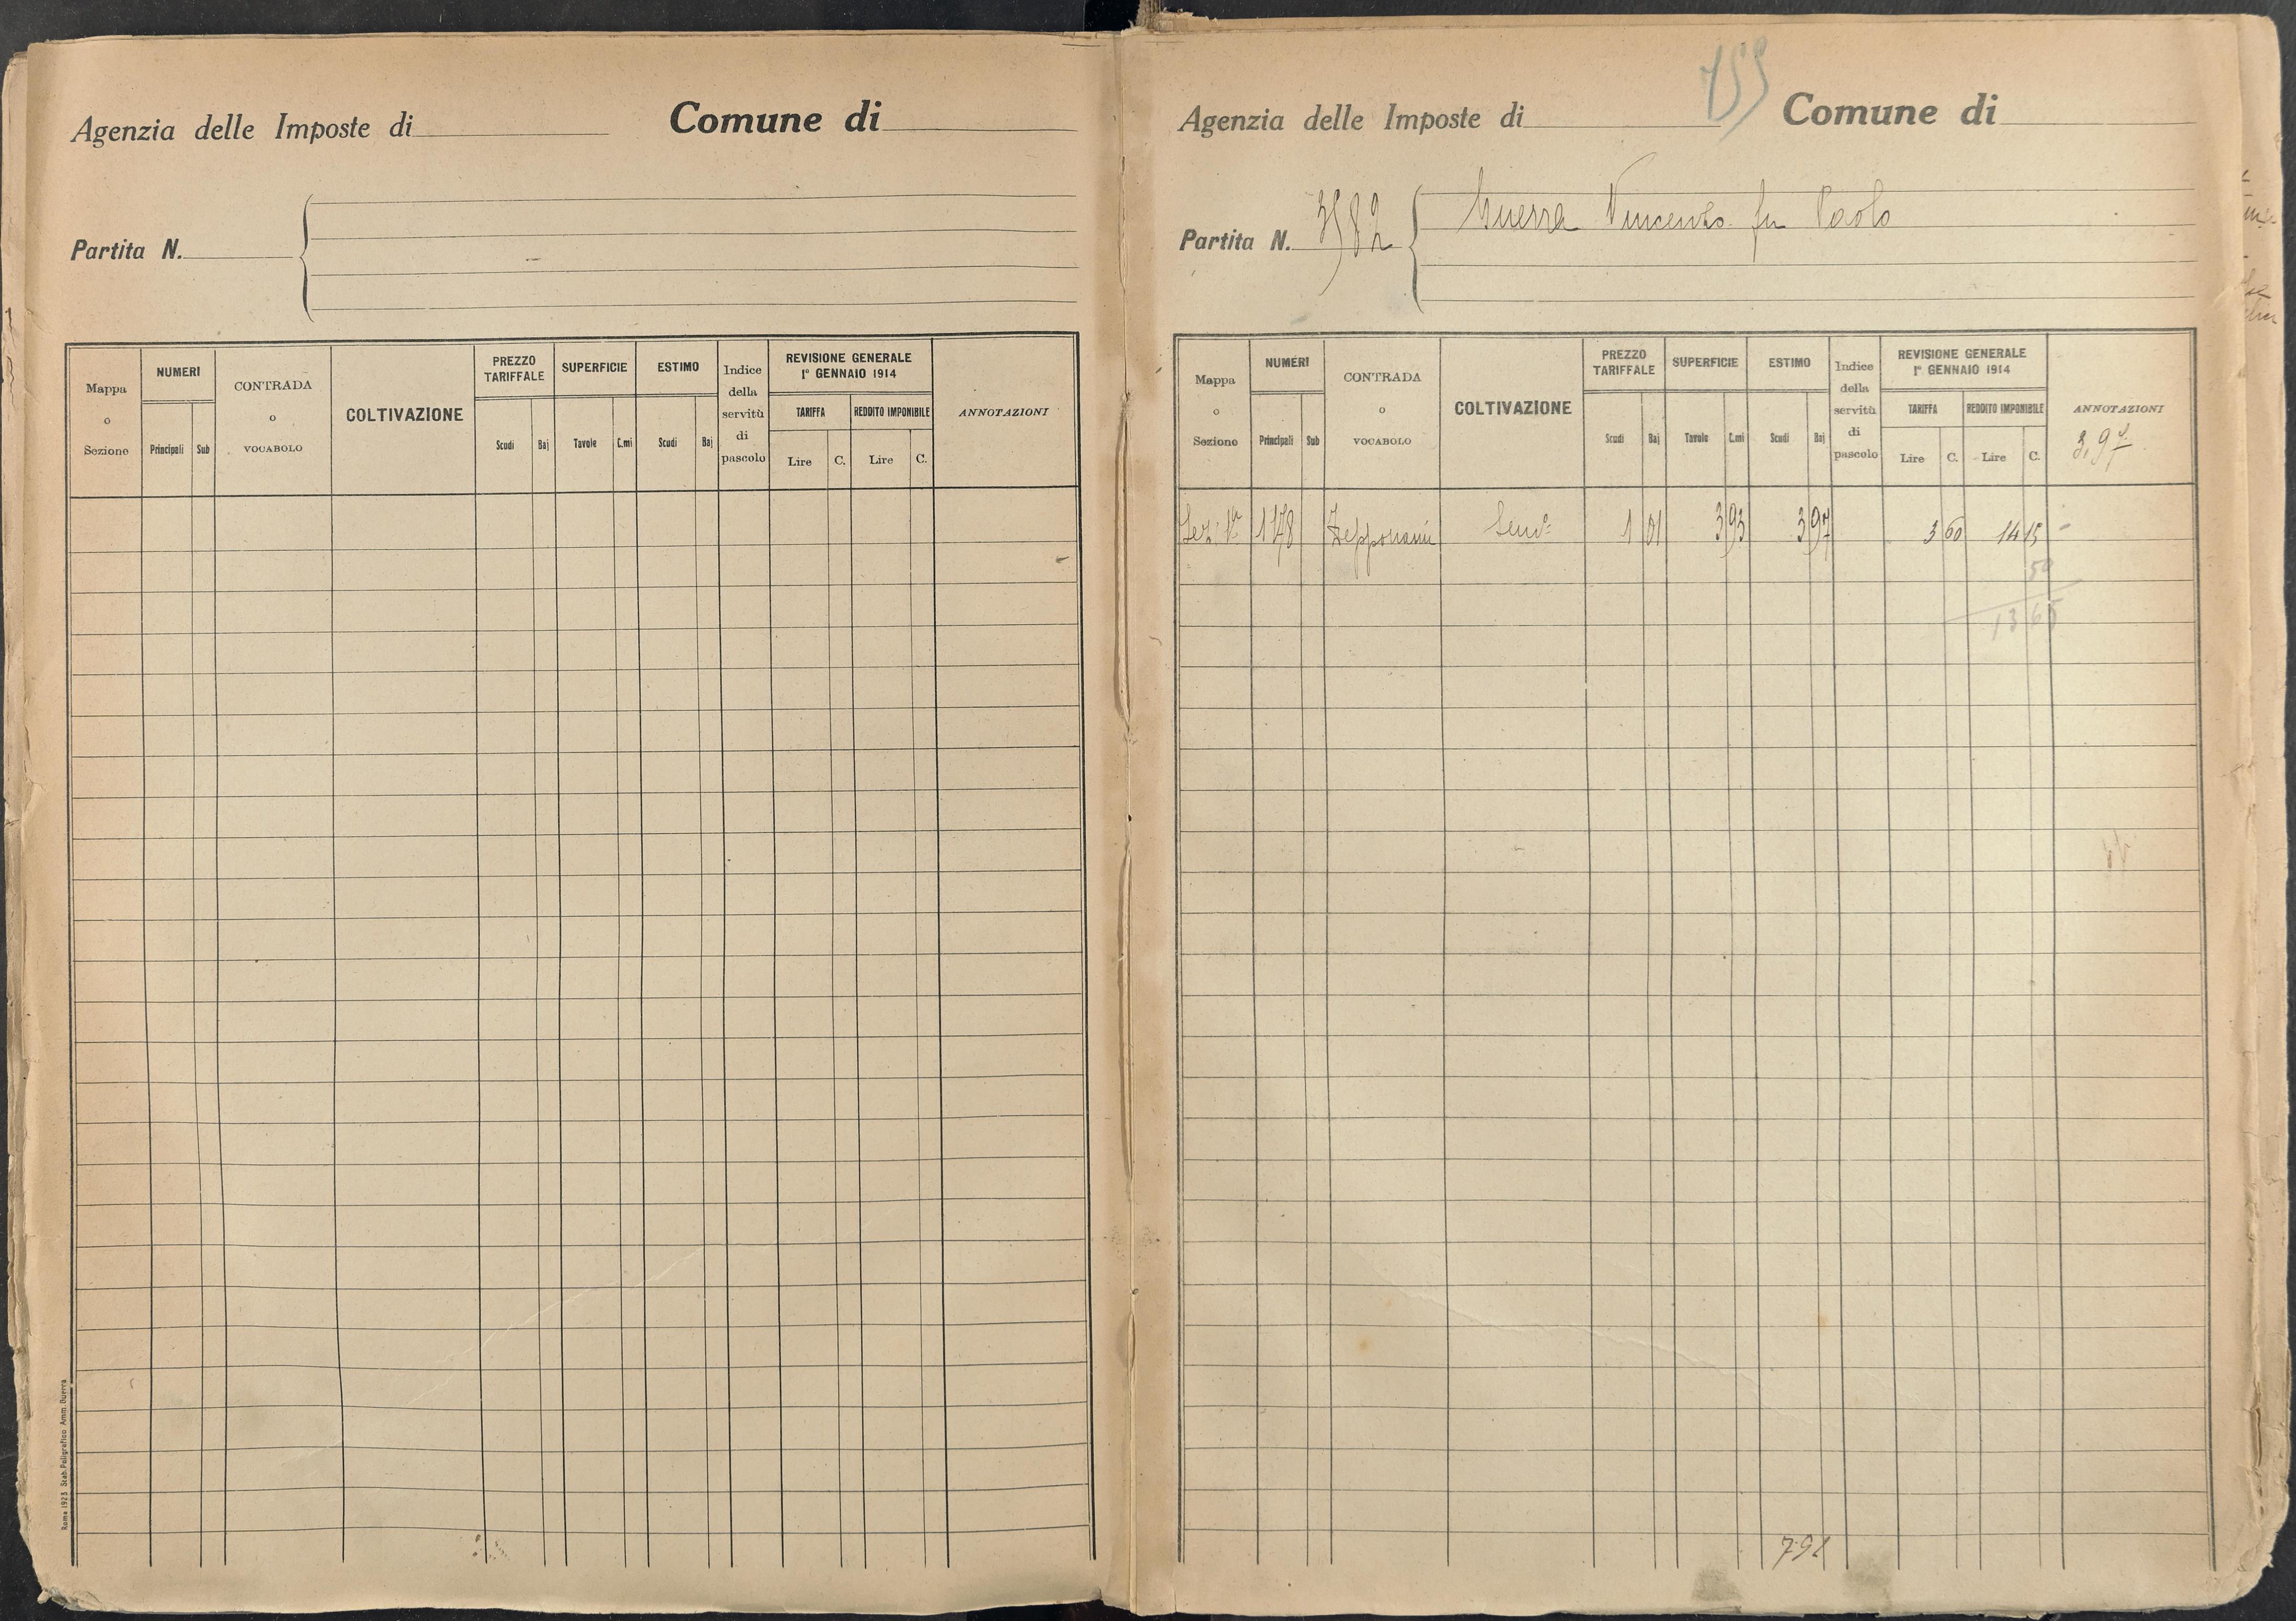 Agenzia delle Imposte di
Comune di
Partita N.
Mappa o Sezione
NUMERI
Principali
Sub
CONTRADA o VOCABOLO
COLTIVAZIONE
PREZZO TARIFFALE
Scudi
Baj
SUPERFICIE
Tavole
C.mi
ESTIMO
Scudi
Baj
Indice della servitù di pascolo
REVISIONE GENERALE
1° GENNAIO 1914
TARIFFA
REDDITO IMPONIBILE
Lire
C.
Lire
C.
ANNOTAZIONI
Roma 1923 Stab. Poligrafico Amm. Guerra
Agenzia delle Imposte di
Comune di
Partita N. 3582
Guerra Vincenzo fu Paolo
Mappa o Sezione
NUMERI
Principali
Sub
CONTRADA o VOCABOLO
COLTIVAZIONE
PREZZO TARIFFALE
Scudi
Baj
SUPERFICIE
Tavole
C.mi
ESTIMO
Scudi
Baj
Indice della servitù di pascolo
REVISIONE GENERALE
1° GENNAIO 1914
TARIFFA
REDDITO IMPONIBILE
Lire
C.
Lire
C.
ANNOTAZIONI
3,97
Sez. 1a 1178 Zepponami Semo 1 01 3 93 3 97 3 60 14 15
50
13 65
791